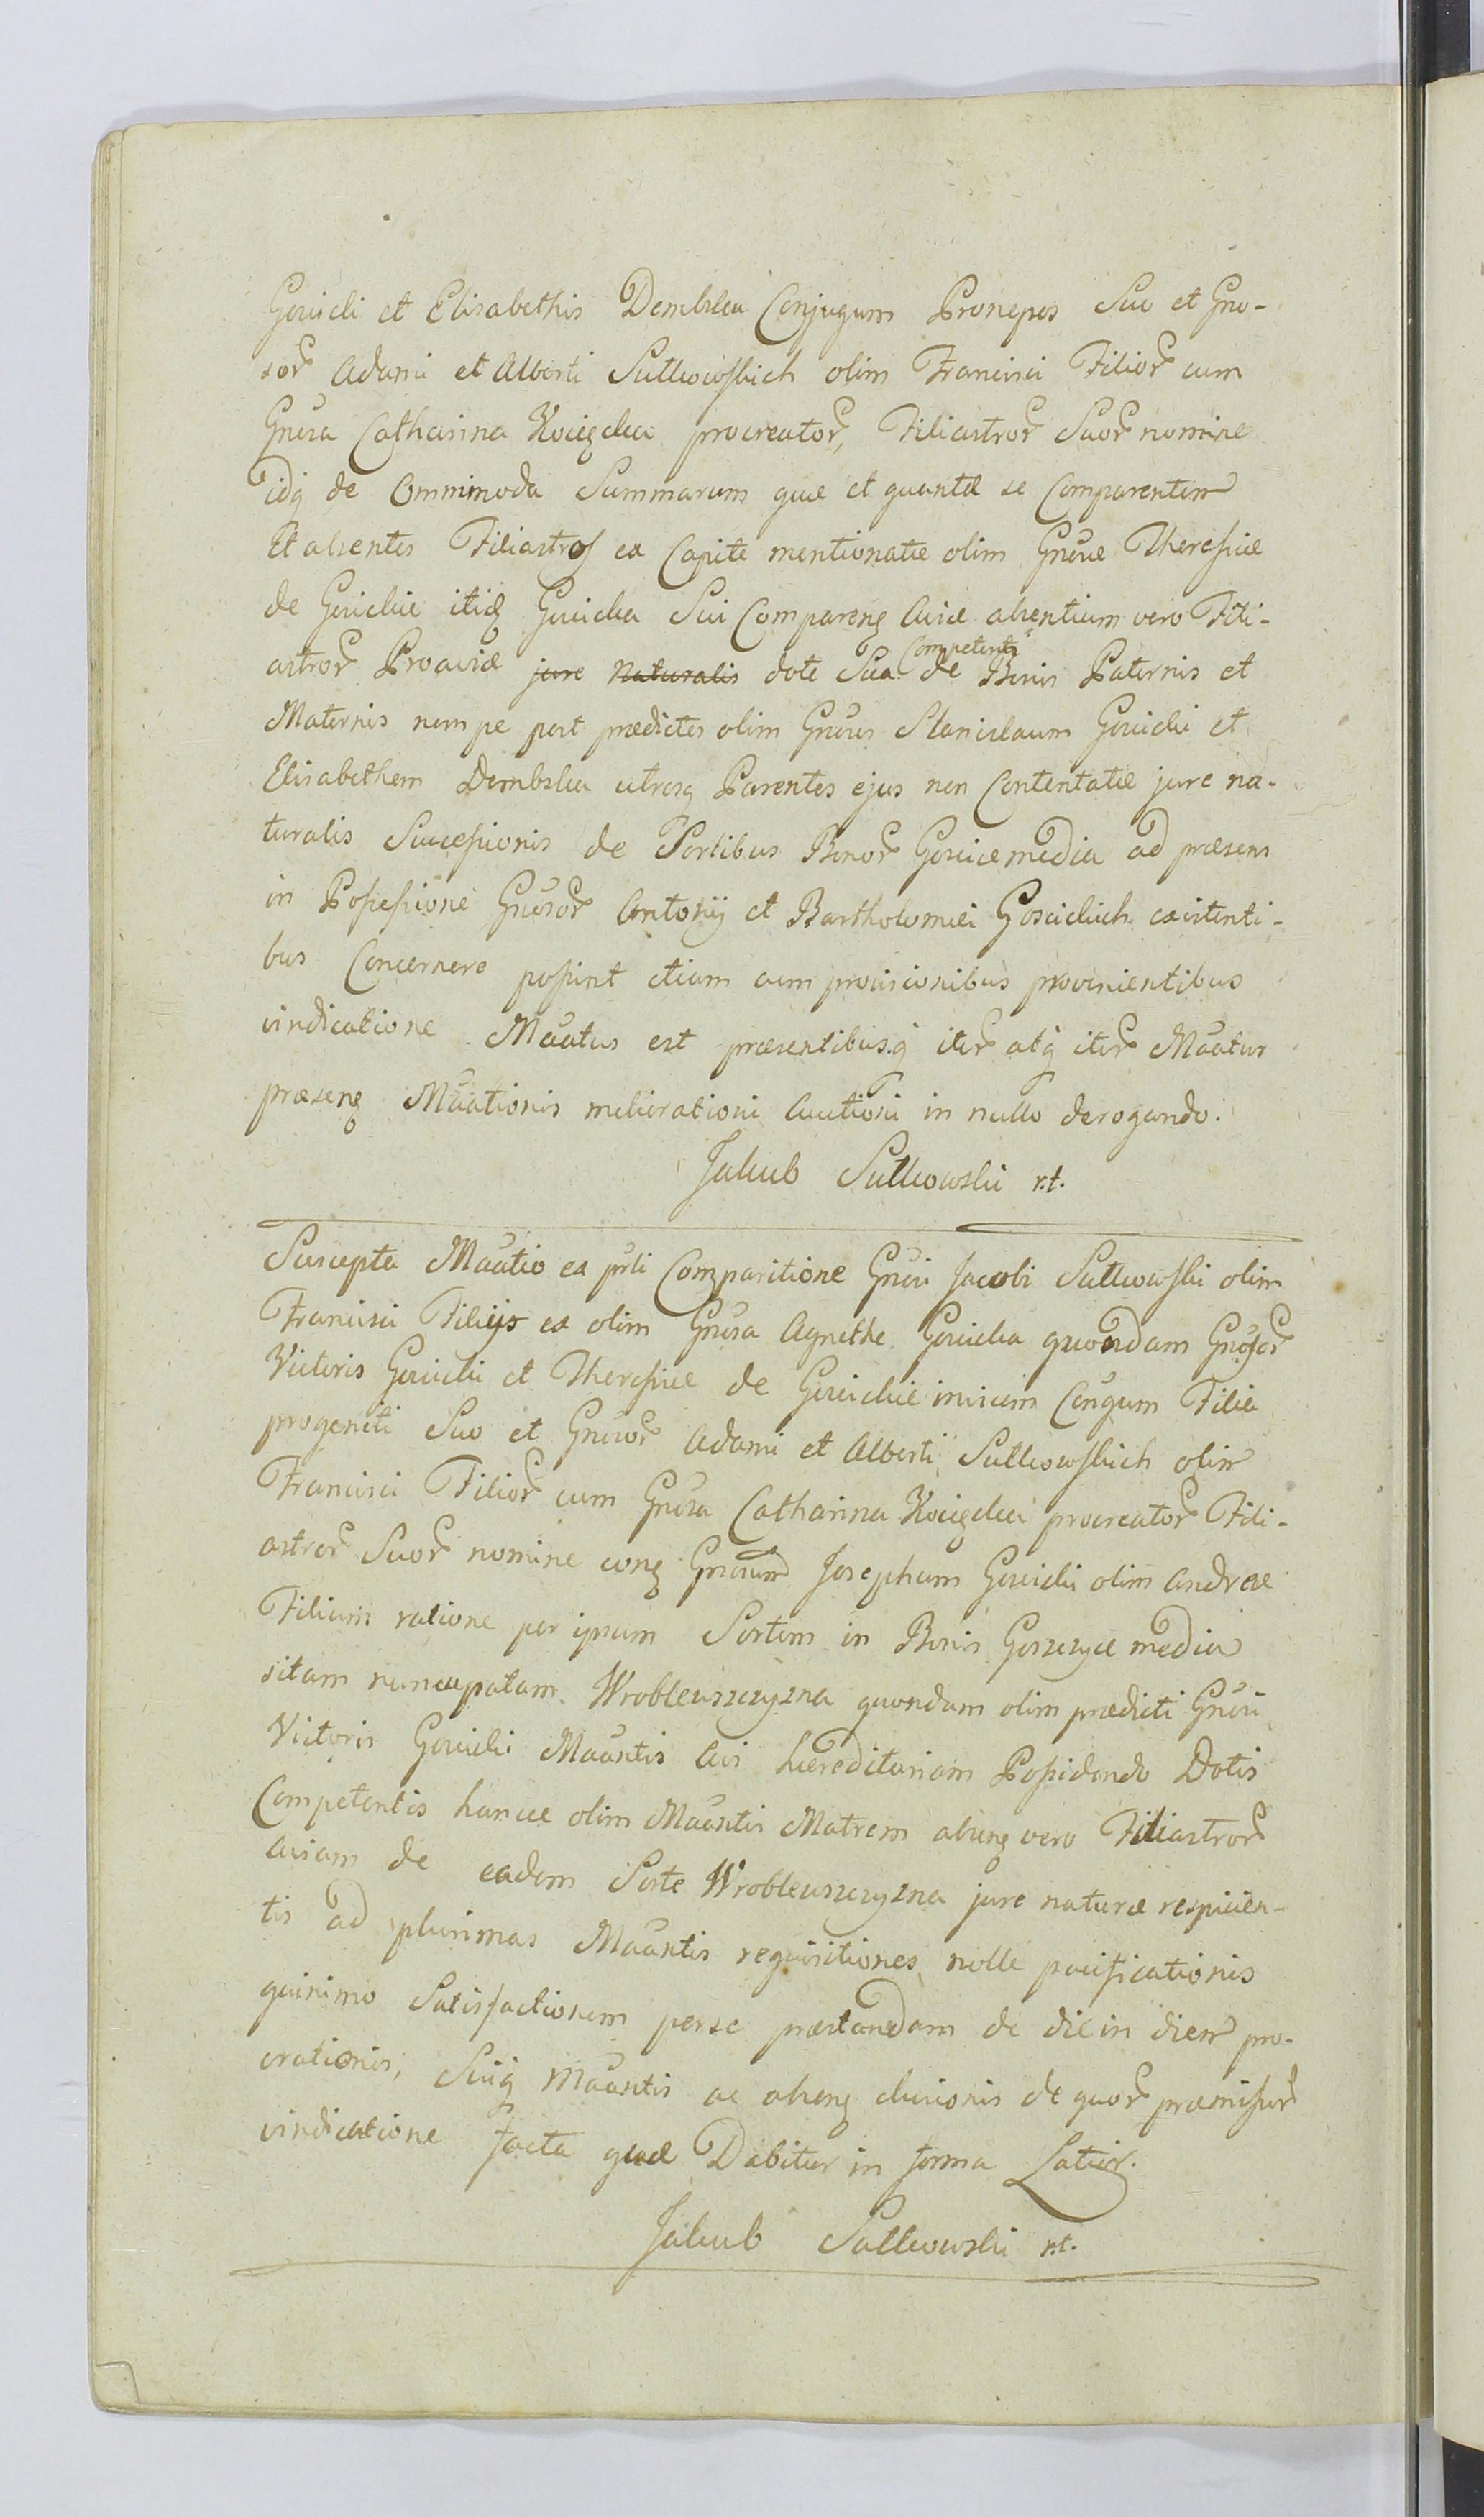 Goscicki et Elisabethis Dembska Conjugum Pronepos Suo et Gno-
sor Adami et Alberti Sutkowskich olim Francisci Filior cum
Gnosa Catharina Kocięcka procreator, Filiastror Suor nomine
idq de Omnimoda Summarum quæ et quantæ se Comparentem
Et absentes Filiastros ex Capite mentionatæ olim Gnosæ Theressiæ
de Goscickie itidē Goscicka Sui Comparens Aviæ absentium vero Fili-
astror Proaviæ jure Naturalis dote Sua Competenti de Bonis Paternis et
Maternis nempe post prædictos olim Gnosos Stanislaum Goscicki et
Elisabethem Dembska utrosq Parentes ejus non Contentatæ jure na-
turalis Successionis de Sortibus Bonor Goscice media ad præsens
in Possessione Gnosor Antonij et Bartholomei Goscickich existenti-
bus Concernere possint etiam cum provisionibus provenientibus
vindicatione Maatus est præsentibusq iter atq iter Maatur
præsens Maationis meliorationi Auctioni in nullo derogando.
Jakub Sutkowski r.t.
Suscepta Maatio ex psli Comparitione Gnosi Jacobi Sutkowski olim
Francisci Filijs ex olim Gnosa Agnethe Goscicka quondam Gnosor
Victoris Goscicki et Theressiæ de Goscickie invicem Congum Filia
progeniti Suo et Gnosor Adami et Alberti Sutkowskich olim
Francisci Filior cum Gnosa Catharina Kocięcka procreator Fili-
astror Suor nomine cong Gnosum Josephum Goscicki olim Andreæ
Filium ratione per ipsum Sortem in Bonis Goszczyce media
sitam nuncupatam Wroblewszczyzna quondam olim prædicti Gnosi
Victoris Goscicki Maantis Avi hæreditariam Possidendo Dotis
Competentis hancce olim Maantis Matrem absens vero Filiastror
Aviam de eadem Sorte Wroblewszczyzna jure naturæ respicien-
tis ad plurimas Maantis requisitiones nolle pacificationis
quinimo Satisfactionem per se præstandam de die in diem pro-
crationis, Suiq Maantis ac absens elusionis de quor præmissor
vindicatione facta quæ Dabitur in forma Latior.
Jakub Sutkowski r.t.